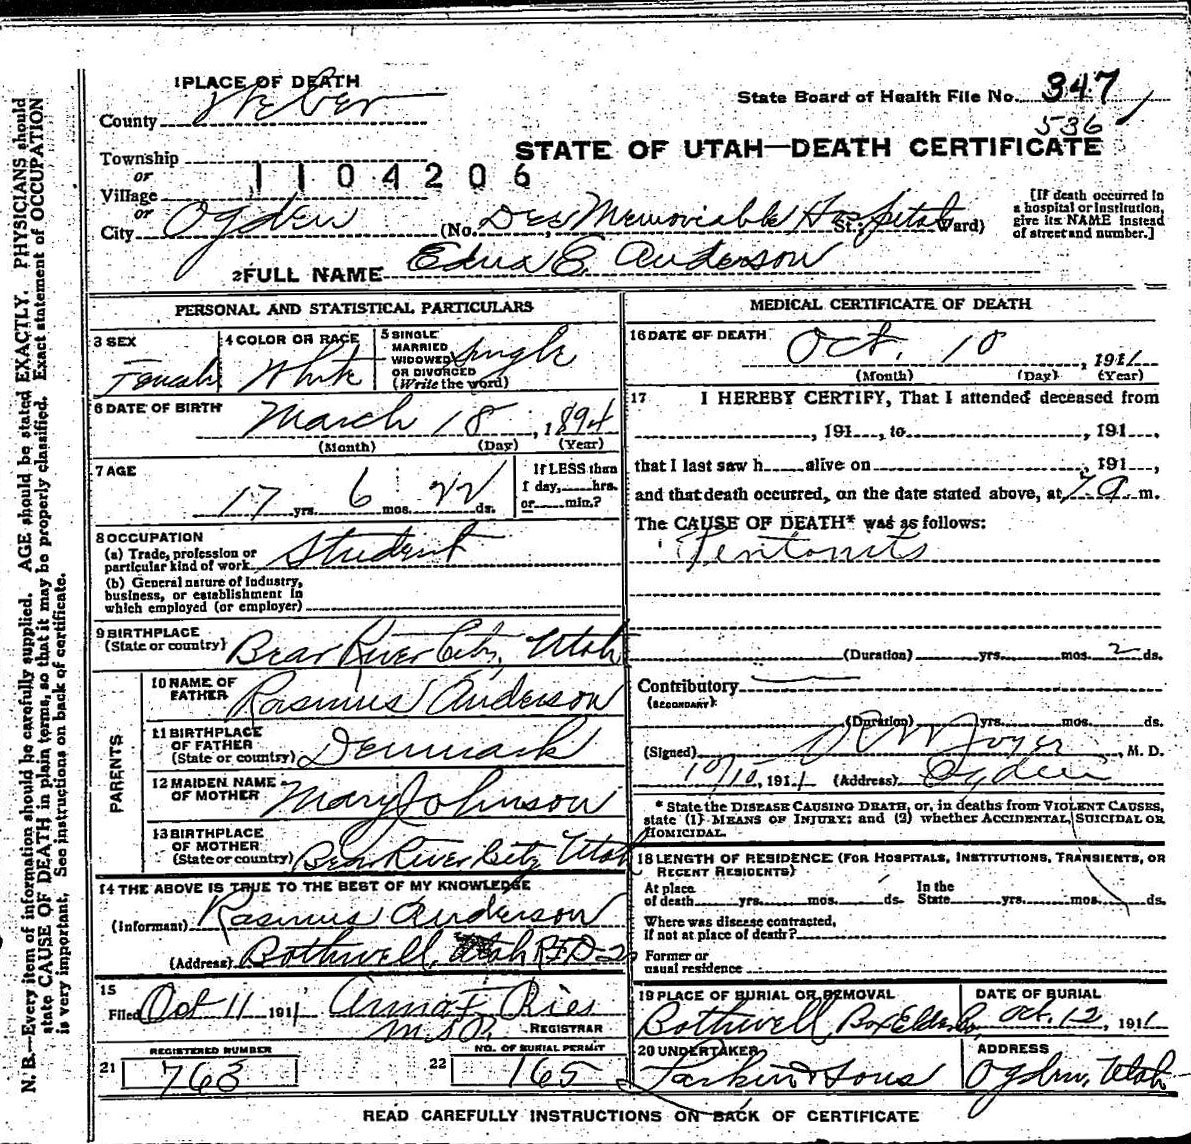 1 PLACE OF DEATH
County Weber
State Board of Health File No. 347
536
STATE OF UTAH—DEATH CERTIFICATE
Township
or
1104206
Village
or
City Ogden (No. Dee Memoriable Hospital St.; Ward)
[If death occurred in
a hospital or institution,
give its NAME instead
of street and number.]
2 FULL NAME Edna E. Anderson
PERSONAL AND STATISTICAL PARTICULARS
3 SEX
Female
4 COLOR OR RACE
White
5 SINGLE
MARRIED
WIDOWED
OR DIVORCED
(Write the word)
Single
6 DATE OF BIRTH
March 18, 1894
(Month) (Day) (Year)
7 AGE
17 yrs. 6 mos. 22 ds.
If LESS than
1 day, hrs.
or min.?
8 OCCUPATION
(a) Trade, profession or
particular kind of work Student
(b) General nature of industry,
business, or establishment in
which employed (or employer)
9 BIRTHPLACE
(State or country) Bear River City, Utah
PARENTS
10 NAME OF
FATHER Rasmus Anderson
11 BIRTHPLACE
OF FATHER
(State or country) Denmark
12 MAIDEN NAME
OF MOTHER Mary Johnson
13 BIRTHPLACE
OF MOTHER
(State or country) Bear River City Utah
14 THE ABOVE IS TRUE TO THE BEST OF MY KNOWLEDGE
(Informant) Rasmus Anderson
(Address) Bothwell, Utah RFD-2
15
Filed Oct 11 1911 Anna F. Ries
REGISTRAR
21 REGISTERED NUMBER
763
22 NO. OF BURIAL PERMIT
165
MEDICAL CERTIFICATE OF DEATH
16 DATE OF DEATH
Oct. 10, 1911
(Month) (Day) (Year)
17 I HEREBY CERTIFY, That I attended deceased from
, 191 , to , 191 ,
that I last saw h alive on , 191 ,
and that death occurred, on the date stated above, at 7 a m.
The CAUSE OF DEATH* was as follows:
Peritonits
(Duration) yrs. mos. 2 ds.
Contributory
(SECONDARY)
(Duration) yrs. mos. ds.
(Signed) Joyce, M. D.
10/10, 1911 (Address) Ogden
* State the DISEASE CAUSING DEATH, or, in deaths from VIOLENT CAUSES,
state (1) MEANS OF INJURY; and (2) whether ACCIDENTAL, SUICIDAL OR
HOMICIDAL.
18 LENGTH OF RESIDENCE (FOR HOSPITALS, INSTITUTIONS, TRANSIENTS, OR
RECENT RESIDENTS)
At place
of death yrs. mos. ds.
In the
State yrs. mos. ds.
Where was disease contracted,
if not at place of death?
Former or
usual residence
19 PLACE OF BURIAL OR REMOVAL
Bothwell Box Elder Co
DATE OF BURIAL
Oct. 12, 1911
20 UNDERTAKER
Larkin & Sons
ADDRESS
Ogden, Utah
READ CAREFULLY INSTRUCTIONS ON BACK OF CERTIFICATE
N. B.—Every item of information should be carefully supplied. AGE should be stated EXACTLY. PHYSICIANS should
state CAUSE OF DEATH in plain terms, so that it may be properly classified. Exact statement of OCCUPATION
is very important. See instructions on back of certificate.